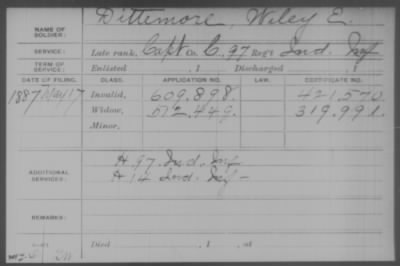 NAME OF SOLDIER: Dittemore, Wiley E.
SERVICE: Late rank, Capt Co. C, 97 Reg't Ind. Inf
TERM OF SERVICE: Enlisted , 1 Discharged , 1
DATE OF FILING. CLASS. APPLICATION NO. LAW. CERTIFICATE NO.
1887 May 17 Invalid, 609.898. 421.570.
Widow, 512.449. 319.991.
Minor,
ADDITIONAL SERVICES: H 97 Ind. Inf
H 14 Ind. Inf —
REMARKS:
Died , 1 , at